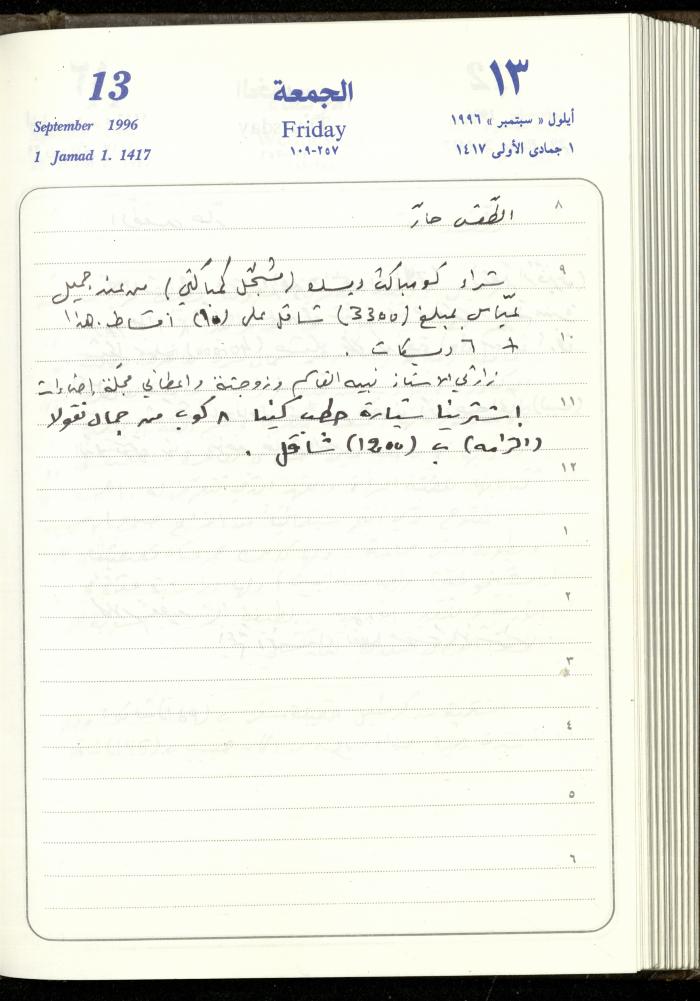 13
September 1996
1 Jamad 1. 1417
الجمعة
Friday
١٠٩-٢٥٧
١٣
أيلول « سبتمبر » ١٩٩٦
١ جمادى الأولى ١٤١٧
٨
الطقس حارّ
٩
شراء كومباكت ديسك (مسجّل كمباكتي) من عند جميل
عبّاس بمبلغ (3300) شاقل على (10) أقساط. هذا
١٠
+ ٦ ديسكات .
زارني الاستاذ نبيه القاسم وزوجته واعطاني مجلّة إضاءات
١١
إشترينا سيّارة حطب كينا ٨ كوب من جمال نقولا
(الرامه) بـ (1200) شاقل .
١٢
١
٢
٣
٤
٥
٦